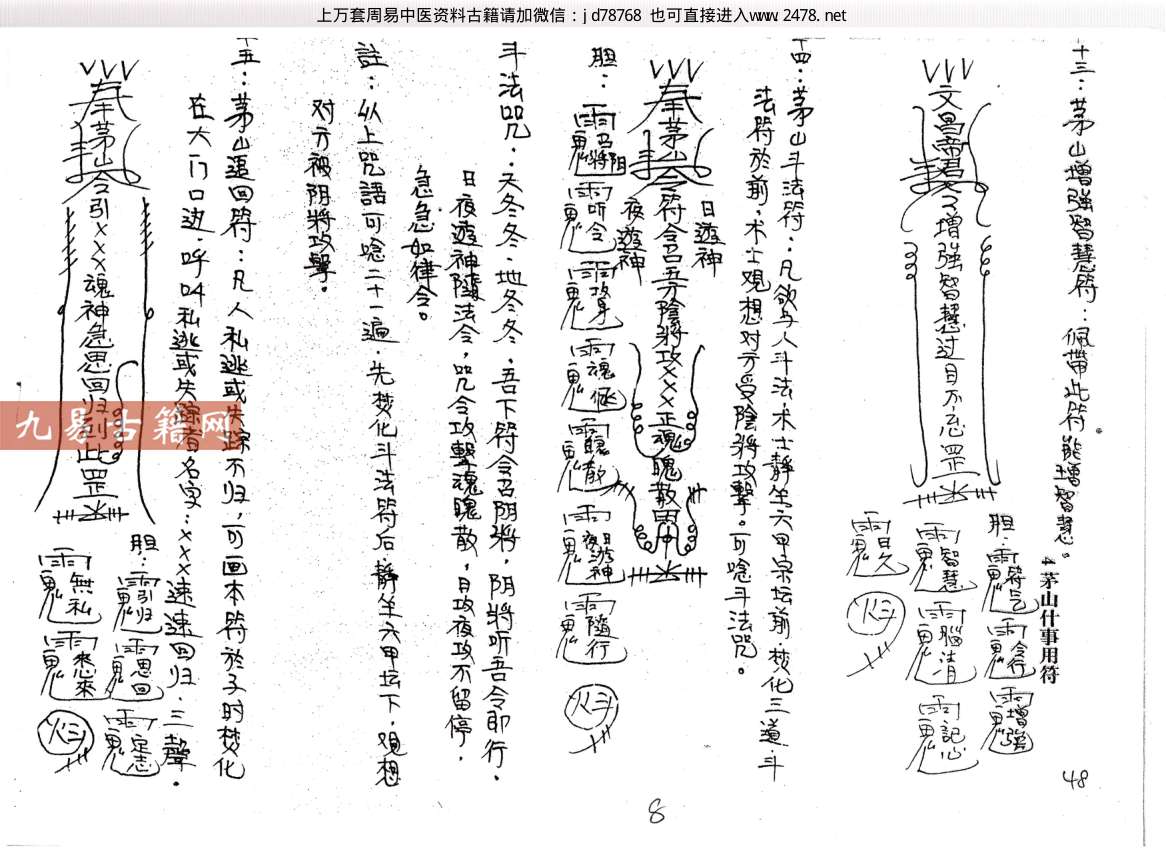 上万套周易中医资料古籍请加微信：jd78768 也可直接进入www.2478.net
十三：茅山增强智慧符：佩帶此符能增智慧。
4 茅山什事用符
48
文昌帝君
增强智慧过目不忘罡
胆：
符气
令行
增强
智慧
腦清
記心
日久
十四：茅山斗法符：凡欲与人斗法术士靜坐六甲宗坛前焚化三道斗
法符於前，术士观想对方受陰將攻擊。可唸斗法咒。
奉茅山令符令召五方陰將攻×××正魂魄散
日遊神
夜遊神
胆：
召阴將
听令
攻身
魂
散
日夜游神
隨行
斗法咒：天冬冬、地冬冬、吾下符令召阴將，阴將听吾令即行，
日夜遊神隨法令，咒令攻擊魂魄散，日攻夜攻不留停，
急急如律令。
註：以上咒語可唸二十一遍，先焚化斗法符后，靜坐六甲坛下，观想
对方被阴將攻擊。
十五：茅山追回符：凡人私逃或失踪不归，可画本符於子时焚化
在大门口边，呼叫私逃或失踪者名字：×××速速回归，三聲。
奉茅山令引×××魂神急思回归到此罡
胆：
引归
思回
定志
無私
想來
九易古籍网
8